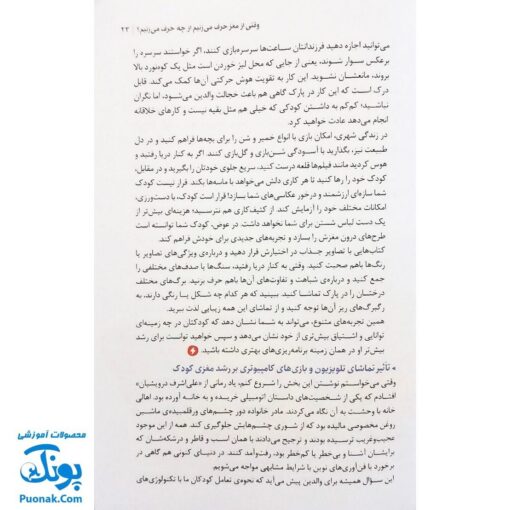 وقتی از مغز حرف می‌زنیم از چه حرف می‌زنیم؟ | ۲۳
می‌توانید اجازه دهید فرزندانتان ساعت‌ها سرسره‌بازی کنند، اگر خواستند سرسره را
برعکس سوار شوند، یعنی از جایی که محل لیز خوردن است مثل یک کوه‌نورد بالا
بروند، مانعشان نشوید. این کار به تقویت هوش حرکتی آن‌ها کمک می‌کند. قابل
درک است که این کار در پارک گاهی هم باعث خجالت والدین می‌شود، اما نگران
نباشید؛ کم‌کم به داشتن کودکی که خیلی هم مثل بقیه نیست و کارهای خلاقانه
انجام می‌دهد عادت خواهید کرد.
در زندگی شهری، امکان بازی با انواع خمیر و شن را برای بچه‌ها فراهم کنید و در دل
طبیعت نیز، بگذارید با آسودگی شن‌بازی و گل‌بازی کنند. اگر به کنار دریا رفتید و
هوس کردید مانند فیلم‌ها قلعه درست کنید، سریع جلوی خودتان را بگیرید و در مقابل،
کودک خود را رها کنید تا هر کاری دلش می‌خواهد با ماسه‌ها بکند. قرار نیست کودک
شما سازه‌ای ارزشمند و درخور عکاسی‌های شما بسازد! قرار است کودک، با دست‌ورزی،
امکانات مختلف خود را آزمایش کند. از کثیف‌کاری هم نترسید؛ هزینه‌ای بیش‌تر از
یک دست لباس شستن برای شما نخواهد داشت. در عوض، کودک شما توانسته است
طرح‌های درون مغزش را بسازد و تجربه‌های جدیدی برای خودش فراهم کند.
کتاب‌هایی با تصاویر جذاب در اختیارش قرار دهید و درباره‌ی ویژگی‌های تصاویر یا
رنگ‌ها باهم صحبت کنید. وقتی به کنار دریا رفتید، سنگ‌ها یا صدف‌های مختلفی را
جمع کنید و درباره‌ی شباهت و تفاوت‌های آن‌ها باهم حرف بزنید. برگ‌های مختلف
درختان را در پارک تماشا کنید. ببینید که هر کدام چه شکل یا رنگی دارند، به
رگبرگ‌های ریز آن‌ها توجه کنید و از تماشای این همه زیبایی لذت ببرید.
همین تجربه‌های متنوع، می‌تواند به شما نشان دهد که کودکتان در چه زمینه‌ای
توانایی و اشتیاق بیش‌تری از خود نشان می‌دهد و سپس خواهید توانست برای رشد
بیش‌تر او در همان زمینه برنامه‌ریزی‌های بهتری داشته باشید.
تأثیر تماشای تلویزیون و بازی‌های کامپیوتری بر رشد مغزی کودک
وقتی می‌خواستم نوشتن این بخش را شروع کنم، یاد رمانی از «علی‌اشرف درویشیان»
افتادم که یکی از شخصیت‌های داستان اتومبیلی خریده و به خانه آورده بود. اهالی
خانه با وحشت به آن نگاه می‌کردند. مادر خانواده دور چشم‌های ورقلمبیده‌ی ماشین
روغن مخصوصی مالیده بود که از شوری چشم‌هایش جلوگیری کند. همه از این موجود
عجیب‌وغریب ترسیده بودند و ترجیح می‌دادند با همان اسب و قاطر و درشکه‌شان که
برایشان آشنا و بی‌خطر یا کم‌خطر بود، رفت‌وآمد کنند. در دنیای کنونی هم گاهی در
برخورد با فن‌آوری‌های نوین با شرایط مشابهی مواجه می‌شویم
این سؤال همیشه برای والدین پیش می‌آید که نحوه‌ی تعامل کودکان ما با تکنولوژی‌های
محصولات آموزشی
پونک
Puonak.Com